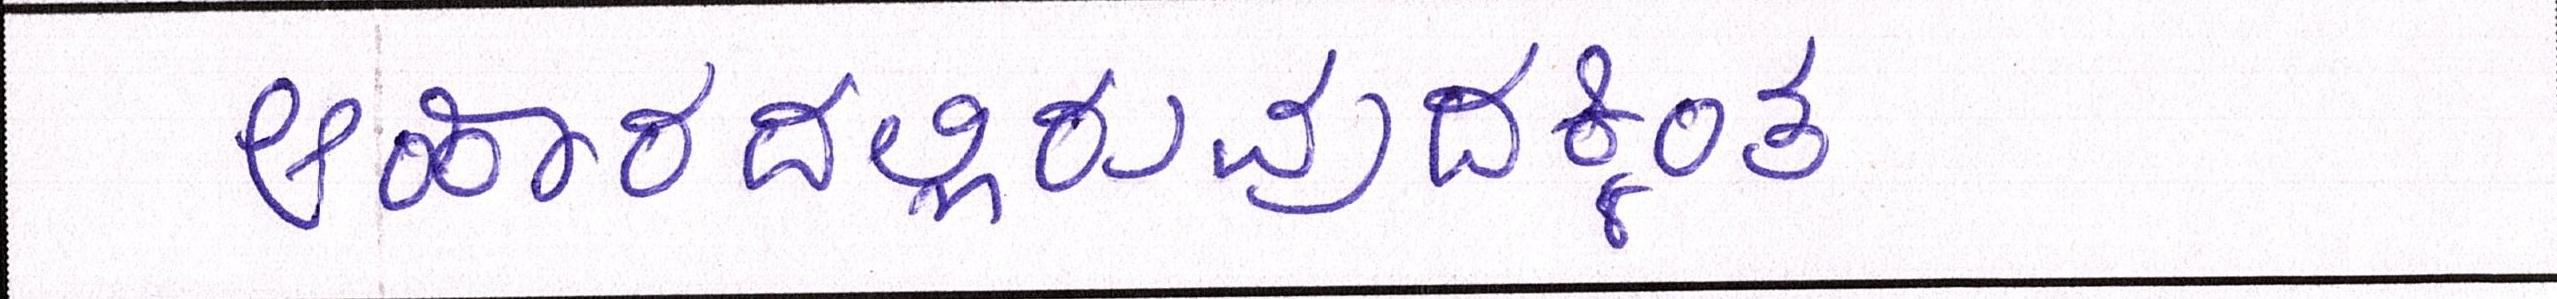 ಆಹಾರದಲ್ಲಿರುವುದಕ್ಕಿಂತ